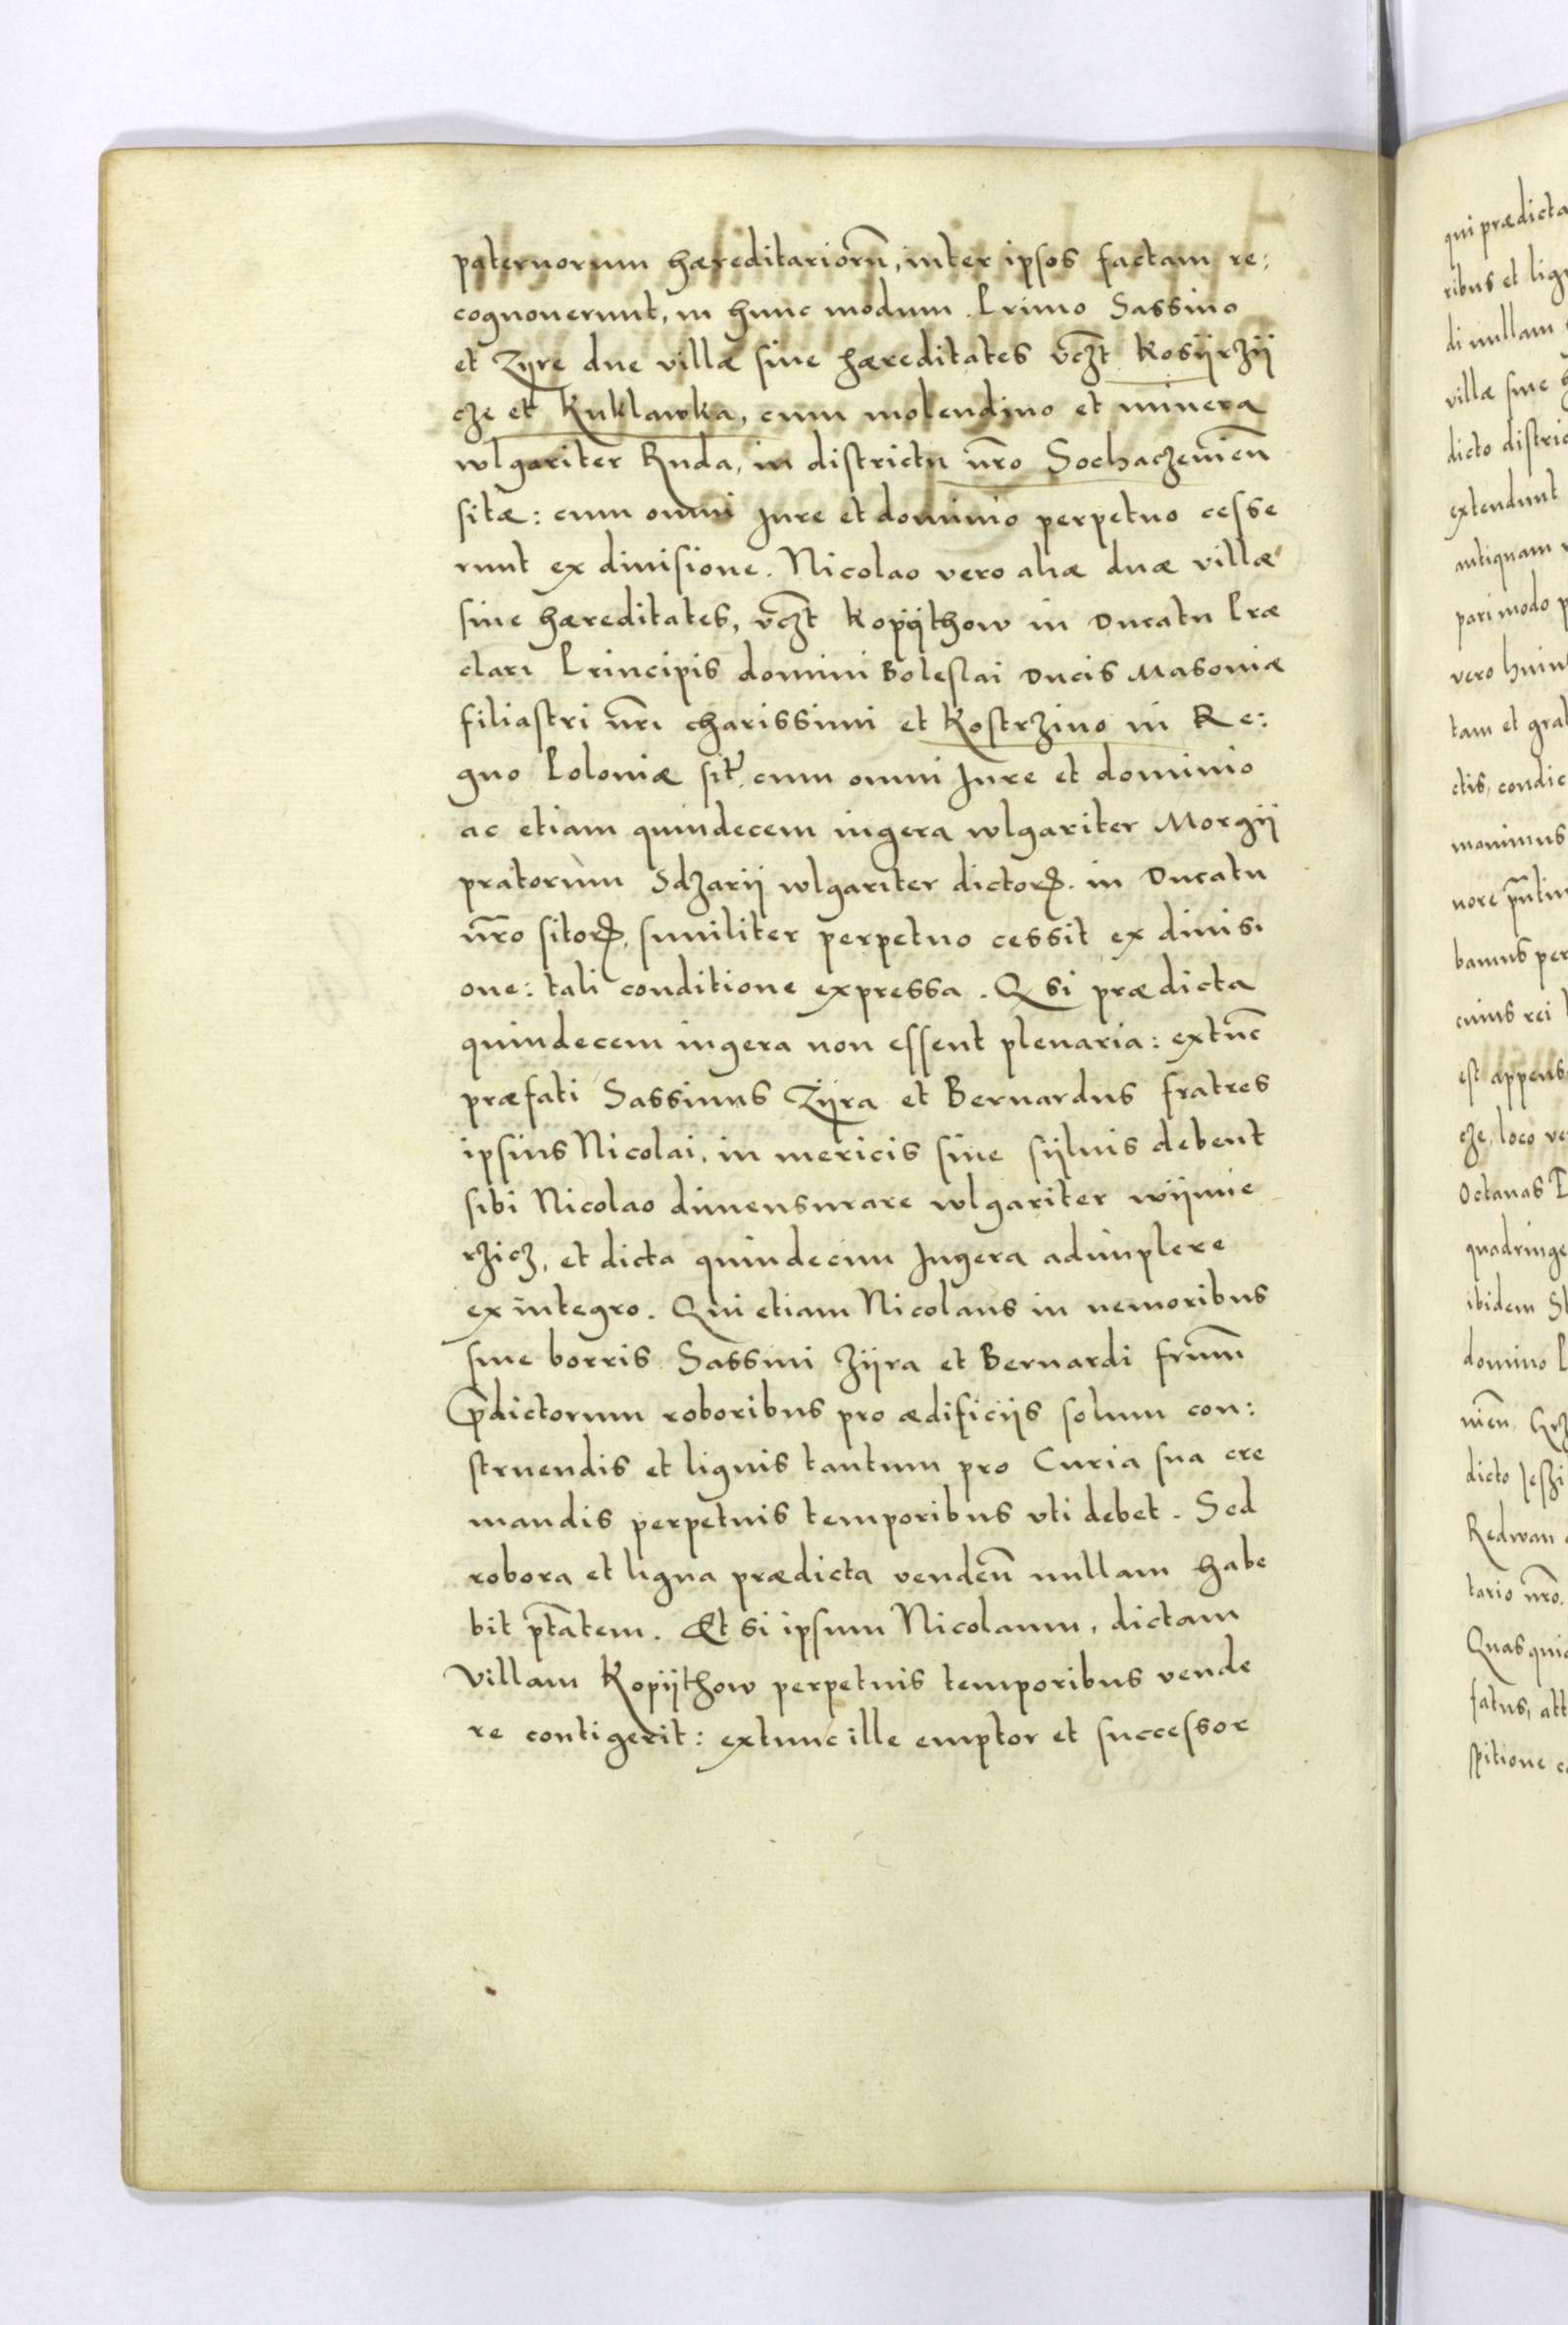 paternorum hæreditariorū, inter ipsos factam re:
cognouerunt, in hunc modum. Primo Sassino
et Zyre due villæ siue hæreditates vcꝫt Kosÿrzÿ
cze et Kuklawka, cum molendino et minera
wlgariter Ruda, in districtu nr̄o Sochaczewien̄
sitæ: cum omni Jure et dominio perpetuo cesse
runt ex diuisione. Nicolao vero aliæ duæ villæ
siue hæreditates, vcꝫt Kopÿthow in Ducatu Præ
clari Principis domini Boleslai Ducis Masoniæ
filiastri nr̄i charissimi et Kostrzino in Re:
gno Poloniæ sit̄. cum omni Jure et dominio
ac etiam quindecem iugera wlgariter Morgÿ
pratorum Sdzarÿ wlgariter dictorꝝ. in Ducatu
nr̄o sitorꝝ, similiter perpetuo cessit ex diuisi
one: tali conditione expressa. Q si prædicta
quindecem iugera non essent plenaria: extūc
præfati Sassinus Zÿra et Bernardus fratres
ipsius Nicolai, in mericis siue sÿluis debent
sibi Nicolao dimensurare wlgariter wÿmie
rzicz, et dicta quindecim Jugera adimplere
ex integro. Qui etiam Nicolaus in nemoribus
siue borris Sassini Zÿra et Bernardi frūm
p̄dictorum roboribus pro ædificÿs solum con:
struendis et lignis tantum pro Curia sua cre
mandis perpetuis temporibus vti debet. Sed
robora et ligna prædicta venden̄ nullam habe
bit ptātem. Et si ipsum Nicolaum, dictam
Villam Kopÿthow perpetuis temporibus vende
re contigerit: extunc ille emptor et successor
qui prædicta
ribus et lig
di nullam
villæ siue
dicto distric
extendunt
antiquam
pari modo
vero huiu
tam et gra
ctis, condic
monimus
nore
bamus per
cuius rei
est appens
cze, loco ve
Octauas
quadringe
ibidem
domino
uien̄
dicto
Redwan
tario nr̄o.
Quas qui
fatus, att